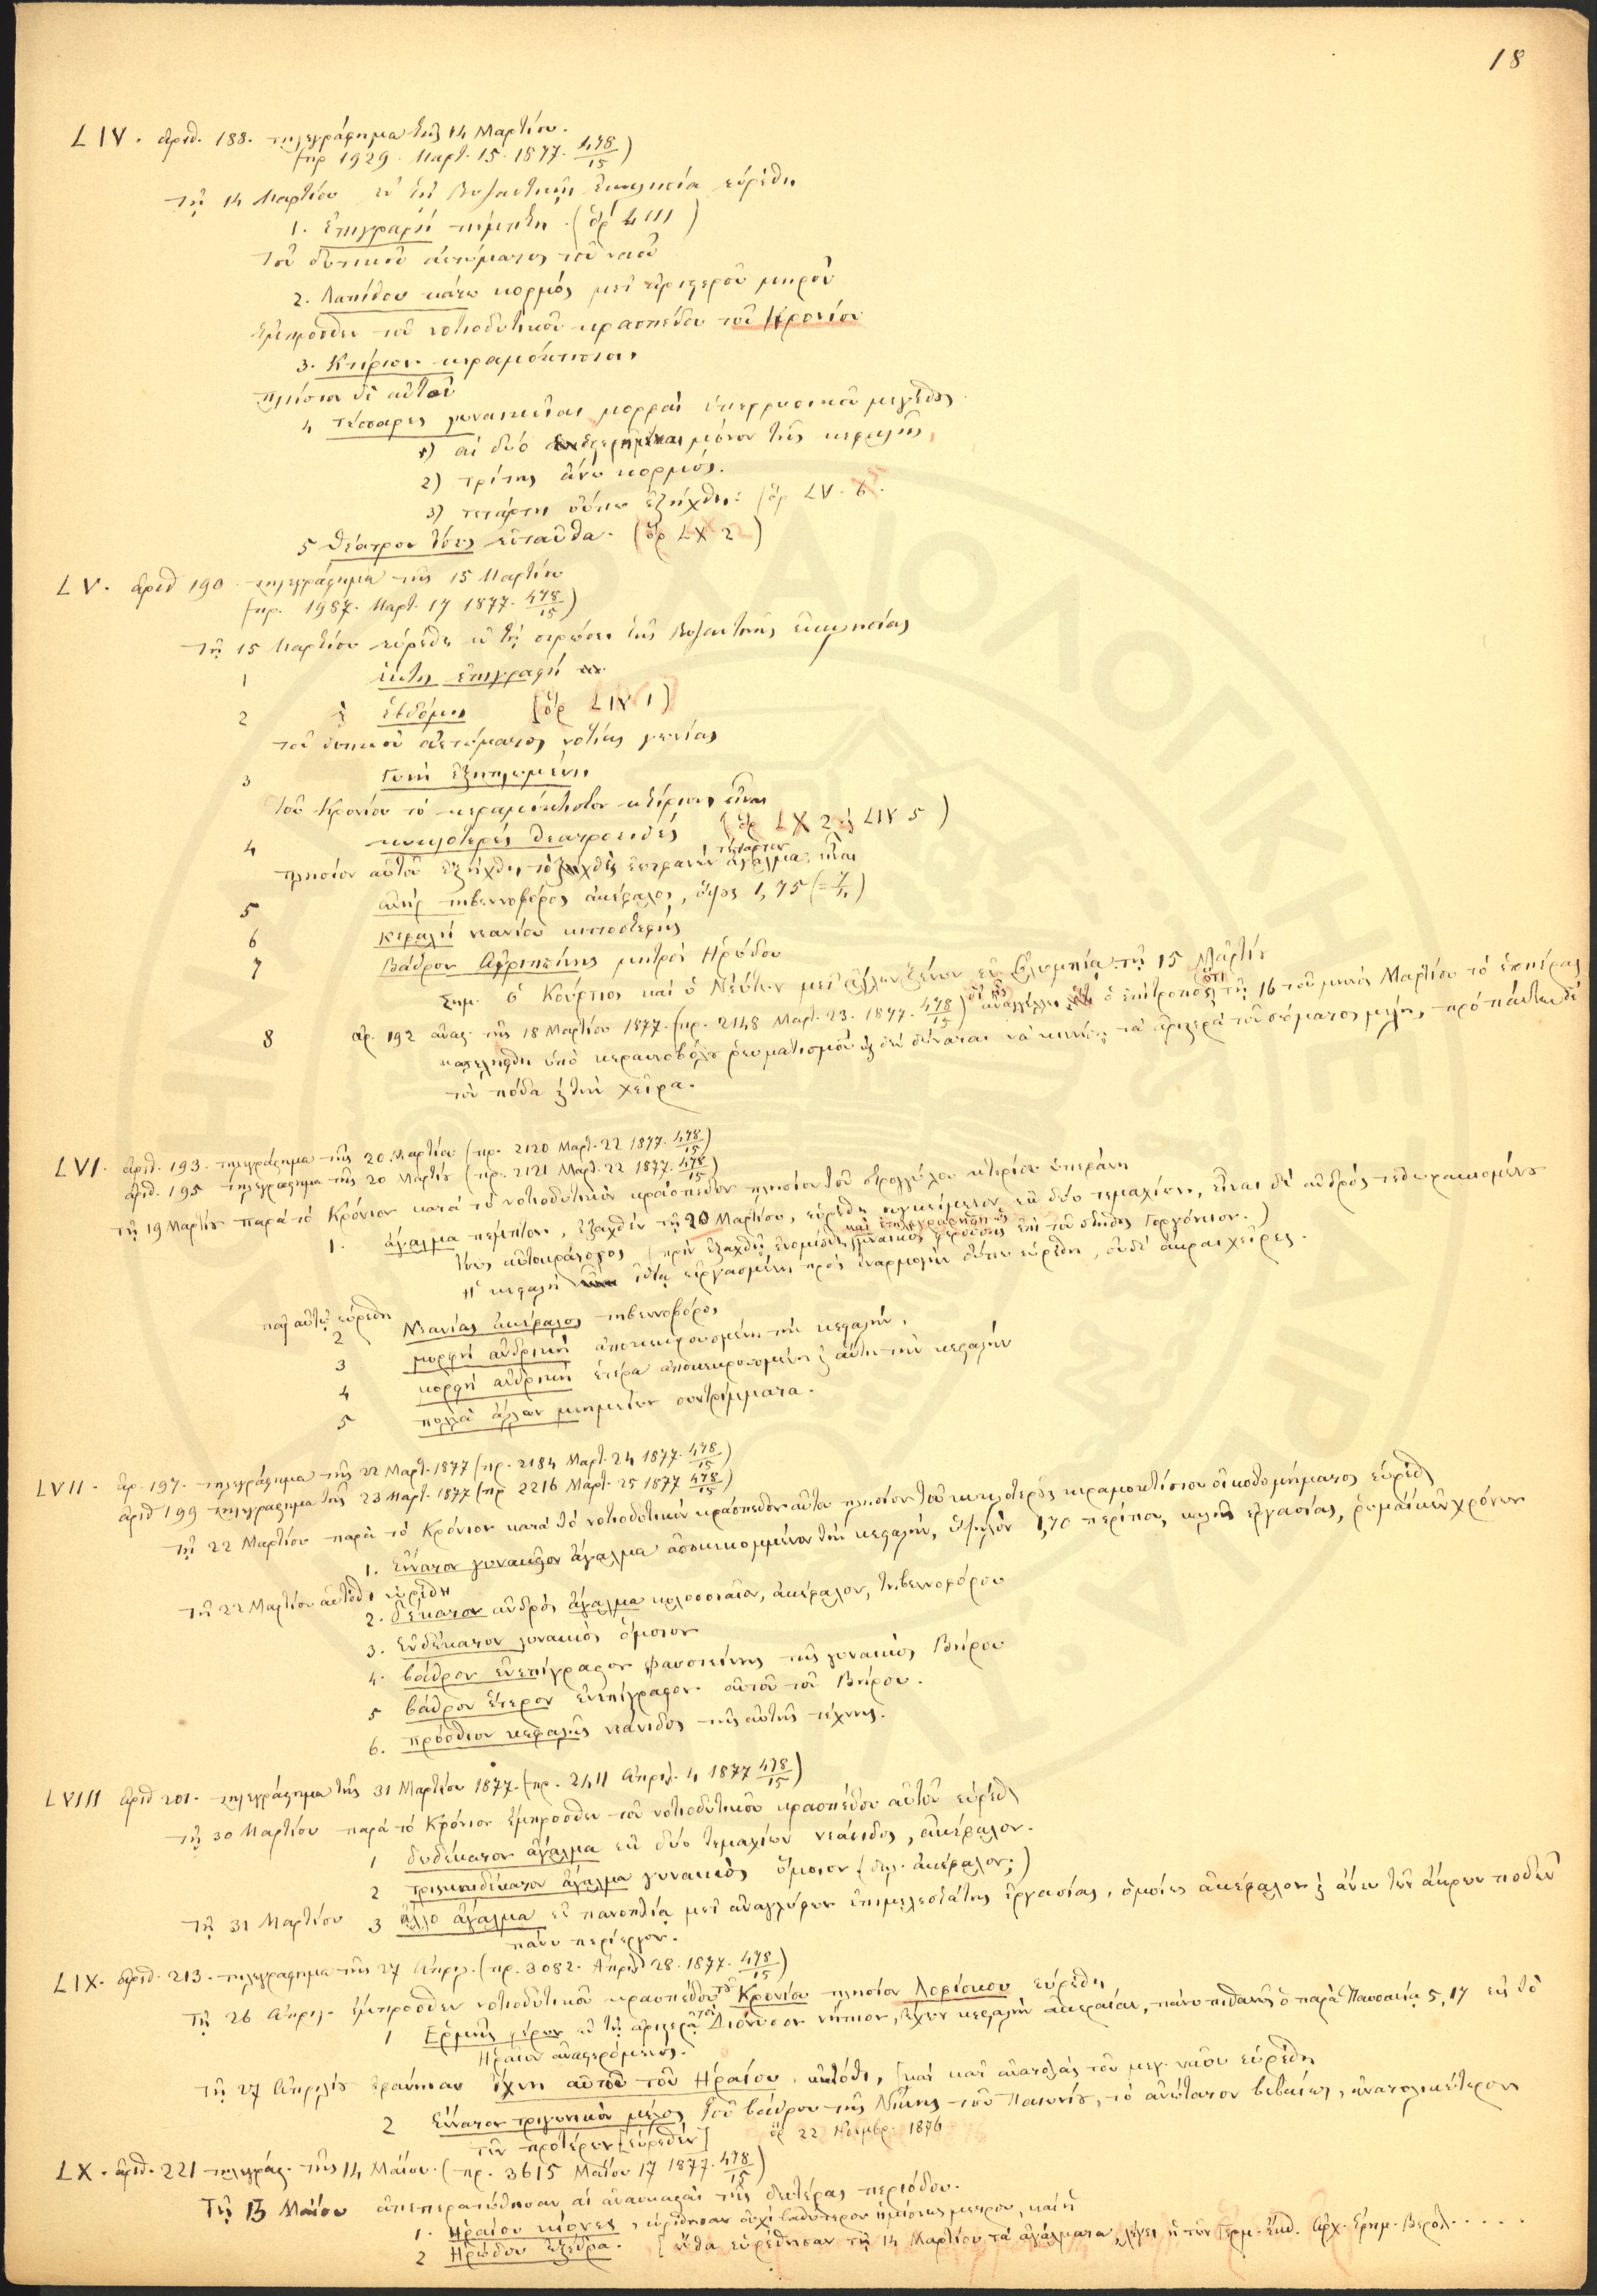 18
LIV. ἀριθ. 188. τηλεγράφημα τῆς 14 Μαρτίου.
(πρ 1929. Μαρτ. 15. 1877. 478/15)
Τῇ 14 Μαρτίου ἐν τῇ Βυζαντινῇ Ἐκκλησίᾳ εὑρέθη
1. Ἐπιγραφὴ πέμπτη. (ὅρ LIII)
τοῦ δυτικοῦ ἀετώματος τοῦ ναοῦ
2. Λαπίθου κάτω κορμὸς μετ' ἀριστεροῦ μηροῦ
Ἔμπροσθεν τοῦ νοτιοδυτικοῦ κρασπέδου τοῦ Κρονίου
3. Κτίριον κεραμόκτιστον
πλησίον δὲ αὐτοῦ
4 τέσσαρες γυναικεῖαι μορφαὶ ὑπερφυσικοῦ μεγέθους
1) αἱ δύο μόνον τῆς κεφαλῆς,
2) τρίτης ἄνω κορμός.
3) τετάρτη οὔπω ἐξήχθη: (ὅρ LV. 5.
5 Θέατρον ἴσως ἐνταῦθα. (ὅρ LX 2)
LV. ἀριθ 190 τηλεγράφημα τῆς 15 Μαρτίου
(πρ. 1987. Μαρτ. 17 1877. 478/15)
Τῇ 15 Μαρτίου εὑρέθη ἐν τῇ στρώσει τῆς Βυζαντινῆς ἐκκλησίας
1 ἕκτη ἐπιγραφή
2 ἑβδόμη [ὅρ LIV 1]
τοῦ δυτικοῦ ἀετώματος νοτίας γωνίας
3 Γυνὴ ἐξηπλωμένη
τοῦ Κρονίου τὸ κεραμόκτιστον κτίριον εἶναι
4 κυκλοτερὲς θεατροειδές (ὅρ LX 2 LIV 5)
πλησίον αὐτοῦ ἐξήχθη, τὸ τέταρτον ἄγαλμα, εἶναι
5 ἀνὴρ τηβεννοφόρος ἀκέφαλος, ὕψος 1,75
6 κεφαλὴ νεανίου κισσοστεφής
7 Βάθρον Ἀγριππίνης μητρὸς Ἡρώδου
Σημ. ὁ Κούρτιος καὶ ὁ Νεύτων μετ' ἄλλων ξένων ἐν Ὀλυμπίᾳ τῇ 15 Μαρτίου
8 ἀρ. 192 ἀναφ. τῆς 18 Μαρτίου 1877. (πρ. 2148 Μαρτ. 23. 1877. 478/15) δι' ἧς ἀναγγέλλει ὁ ἐπίτροπος ὅτι τῇ 16 τοῦ μηνὸς Μαρτίου τὸ ἑσπέρας
κατελήφθη ὑπὸ κεραυνοβόλου ῥευματισμοῦ δὲν δύναται νὰ κινήσῃ τὰ ἀριστερὰ τοῦ σώματος μέλη, πρὸ πάντων δὲ
τὸν πόδα τὴν χεῖρα.
LVI. ἀριθ. 193. τηλεγράφημα τῆς 20 Μαρτίου (πρ. 2120 Μαρτ. 22 1877. 478/15)
ἀριθ. 195 τηλεγράφημα τῆς 20 Μαρτίου (πρ. 2121 Μαρτ. 22 1877. 478/15)
τῇ 19 Μαρτίου παρὰ τὸ Κρόνιον κατὰ τὸ νοτιοδυτικὸν κράσπεδον πλησίον τοῦ στρογγύλου κτιρίου ὑπεράνω
1. ἄγαλμα πέμπτον, ἐξαχθὲν τῇ 20 Μαρτίου, εὑρέθη συγκείμενον ἐκ δύο τεμαχίων, εἶναι δὲ ἀνδρὸς τεθωρακισμένου
ἴσως αὐτοκράτορος (πρὶν ἐξαχθῇ ἐνομίσθη καὶ ἐτηλεγραφήθη ὡς γυναικὸς φερούσης ἐπὶ τοῦ στήθους Γοργόνειον.)
Ἡ κεφαλὴ ἰδίᾳ εἰργασμένη πρὸς ἐναρμογὴν οὔπω εὑρέθη, οὐδὲ ἄκραι χεῖρες.
παρ' αὐτῷ εὑρέθη
2 Νεανίας ἀκέφαλος τηβεννοφόρος
3 μορφὴ ἀνδρικὴ ἀποκεκρουσμένη τὴν κεφαλήν,
4 μορφὴ ἀνδρικὴ ἑτέρα ἀποκεκρουσμένη αὕτη τὴν κεφαλήν
5 πολλὰ ἄλλων μνημείων συντρίμματα.
LVII. ἀρ. 197. τηλεγράφημα τῆς 22 Μαρτ. 1877 (πρ. 2184 Μαρτ. 24 1877. 478/15)
ἀριθ 199 τηλεγράφημα τῆς 23 Μαρτ. 1877 (πρ 2216 Μαρτ. 25 1877 478/15)
τῇ 22 Μαρτίου παρὰ τὸ Κρόνιον κατὰ τὸ νοτιοδυτικὸν κράσπεδον αὐτοῦ πλησίον τοῦ κυκλοτεροῦς κεραμοκτίστου οἰκοδομήματος εὑρέθη
1. Ἔννατον γυναικεῖον ἄγαλμα ἀποκεκομμένον τὴν κεφαλήν, ὑψηλὸν 1,70 περίπου, καλῆς ἐργασίας, ῥωμαϊκῶν χρόνων
Τῇ 22 Μαρτίου αὐτόθι εὑρέθη
2. δέκατον ἀνδρὸς ἄγαλμα κολοσσιαῖον, ἀκέφαλον, τηβεννοφόρου
3. Ἑνδέκατον γυναικὸς ὅμοιον
4. βάθρον ἐνεπίγραφον Φαυστείνης τῆς γυναικὸς Βήρου
5 βάθρον ἕτερον ἐνεπίγραφον αὐτοῦ τοῦ Βήρου.
6. πρόσθιον κεφαλῆς νεάνιδος τῆς αὐτῆς τέχνης.
LVIII ἀριθ 201. τηλεγράφημα τῆς 31 Μαρτίου 1877. (πρ. 2411 Ἀπριλ. 4 1877 478/15)
τῇ 30 Μαρτίου παρὰ τὸ Κρόνιον ἔμπροσθεν τοῦ νοτιοδυτικοῦ κρασπέδου αὐτοῦ εὑρέθη
1 δωδέκατον ἄγαλμα ἐκ δύο τεμαχίων νεάνιδος, ἀκέφαλον.
2 τρισκαιδέκατον ἄγαλμα γυναικὸς ὅμοιον (δηλ. ἀκέφαλον;)
Τῇ 31 Μαρτίου 3 ἄλλο ἄγαλμα ἐν πανοπλίᾳ μετ' ἀναγλύφων ἐπιμελεστάτης ἐργασίας, ὁμοίως ἀκέφαλον ἄνευ τῶν ἄκρων ποδῶν
πάνυ περίεργον.
LIX. ἀριθ. 213. τηλεγράφημα τῆς 27 Ἀπριλ. (πρ. 3082. Ἀπριλ 28. 1877. 478/15)
Τῇ 26 Ἀπριλ. ἔμπροσθεν νοτιοδυτικοῦ κρασπέδου τοῦ Κρονίου πλησίον Λοφίσκου εὑρέθη
1 Ἑρμῆς φέρων ἐν τῇ ἀριστερᾷ τὸν Διόνυσον νήπιον, ἔχων κεφαλὴν ἀκεραίαν, πάνυ πιθανῶς ὁ παρὰ Παυσανίᾳ 5, 17 ἐν τῷ
Ἡραίῳ ἀναφερόμενος.
Τῇ 27 Ἀπριλίου ἐφάνησαν ἴχνη αὐτοῦ τοῦ Ἡραίου αὐτόθι, [καὶ κατ' ἀνατολὰς τοῦ μεγ. ναοῦ εὑρέθη
2 Ἔννατον τριγωνικὸν μέλος τοῦ βάθρου τῆς Νίκης τοῦ Παιωνίου, τὸ ἀνώτατον βεβαίως, ἀνατολικώτερον
τῶν προτέρων [εὑρεθὲν] ὅρ 22 Νοεμβρ. 1876
LX. ἀριθ. 221 τηλεγράφ. τῆς 14 Μαΐου. (πρ. 3615 Μαΐου 17 1877. 478/15)
Τῇ 13 Μαΐου ἀπεπερατώθησαν αἱ ἀνασκαφαὶ τῆς δευτέρας περιόδου.
1. Ἡραίου κίονες, εὑρέθησαν οὐχὶ βαθύτερον ἡμίσεως μέτρου, καὶ ἡ
2 Ἡρώδου Ἐξέδρα. [ἔνθα εὑρέθησαν τῇ 14 Μαρτίου τὰ ἀγάλματα, λέγει ἡ τῶν Γερμ. ἔκδ. Ἀρχ. Ἐφημ. Βερολ.....